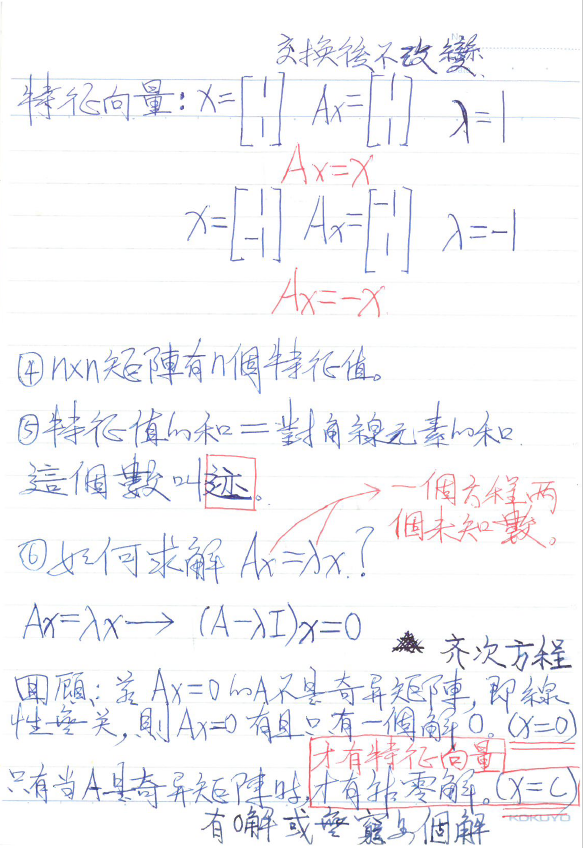 交换後不改變.
特征向量: x=[1 1] Ax=[1 1] λ=1
Ax=x
x=[1 -1] Ax=[-1 1] λ=-1
Ax=-x
④n×n矩陣有n個特征值。
⑤特征值的和=對角線元素的和.
這個數叫迹。
一個方程,两
個未知數。
⑥如何求解 Ax=λx.?
Ax=λx→ (A-λI)x=0
齐次方程
回顧:若 Ax=0的A不是奇异矩陣,即線
性無关,則Ax=0有且只有一個解0。(x=0)
才有特征向量
只有当A是奇异矩陣時,才有非零解。(x=C)
KOKUYO
有0解或無窮多個解